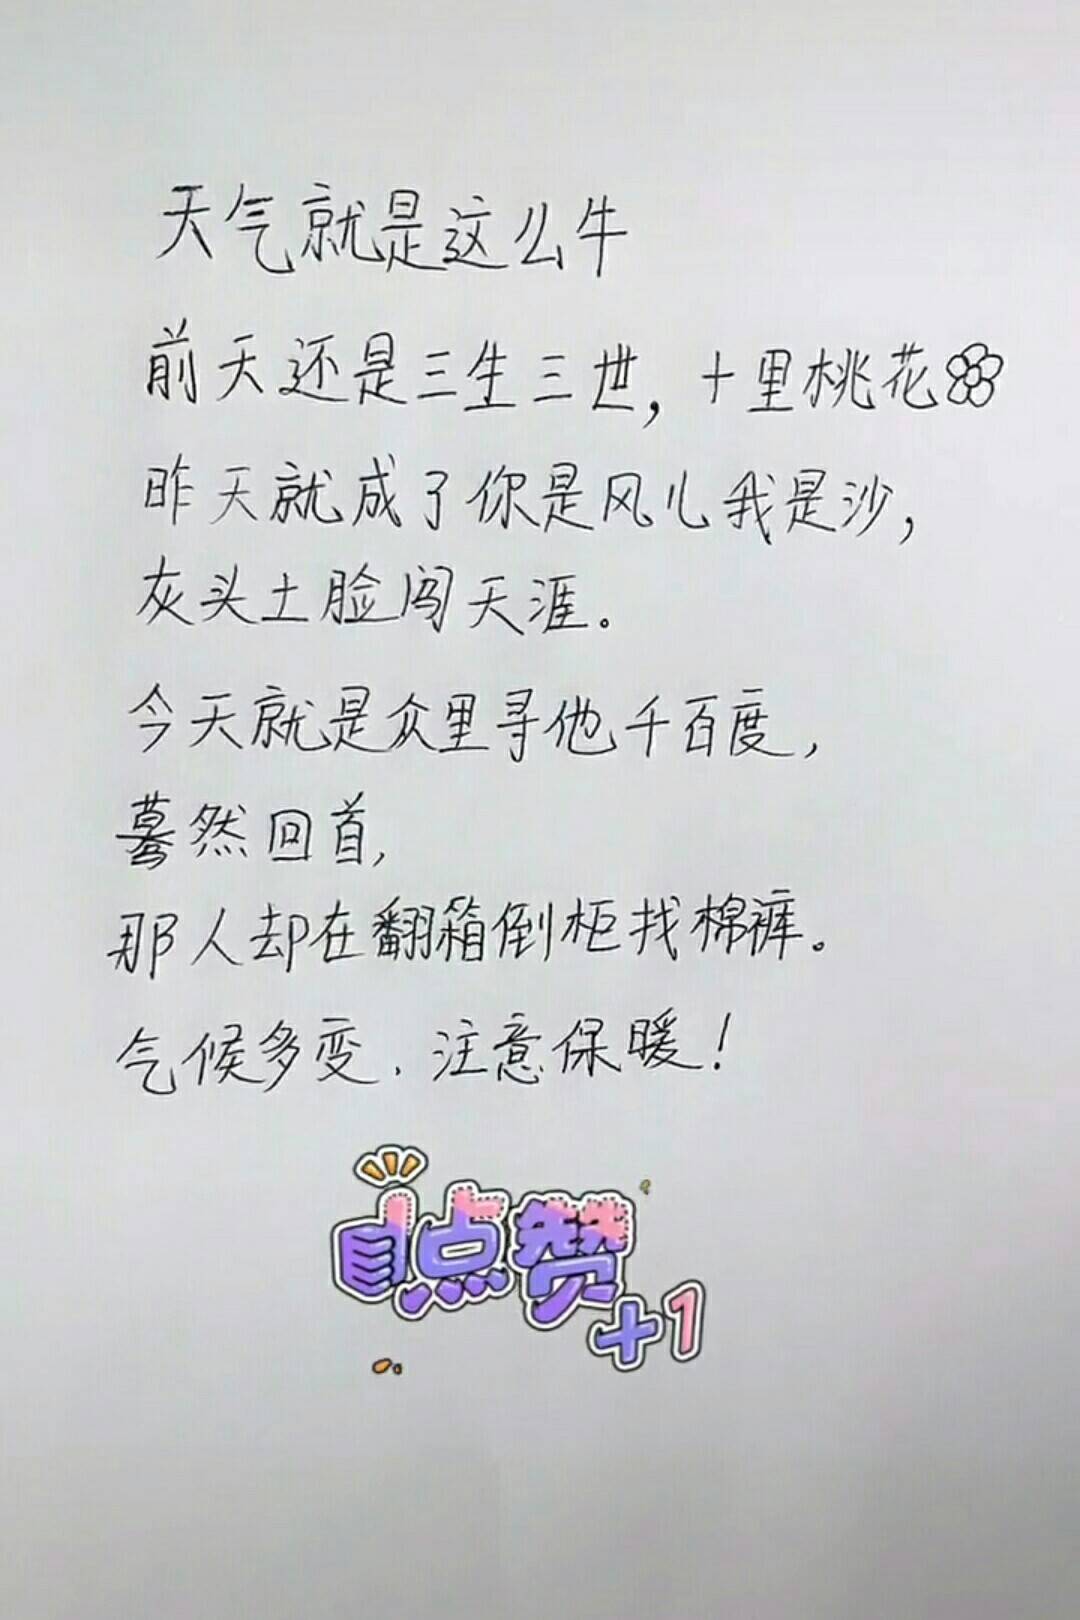 天气就是这么牛
前天还是三生三世，十里桃花
昨天就成了你是风儿我是沙，
灰头土脸闯天涯。
今天就是众里寻他千百度，
蓦然回首，
那人却在翻箱倒柜找棉裤。
气候多变．注意保暖！
点赞
+1